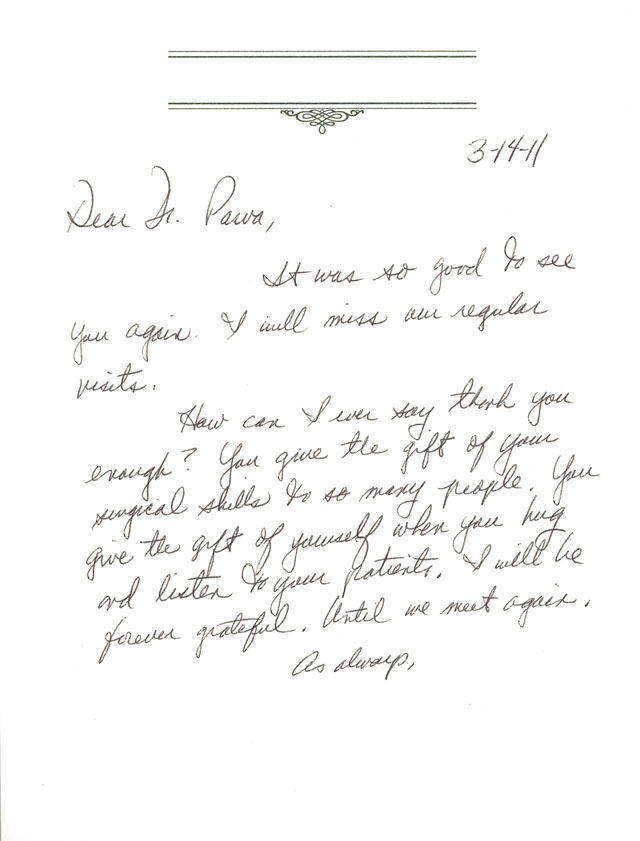 3-14-11
Dear Dr. Pawa,
It was so good to see
you again. I will miss our regular
visits.
How can I ever say thank you
enough? You give the gift of your
surgical skills to so many people. You
give the gift of yourself when you hug
and listen to your patients. I will be
forever grateful. Until we meet again.
As always,